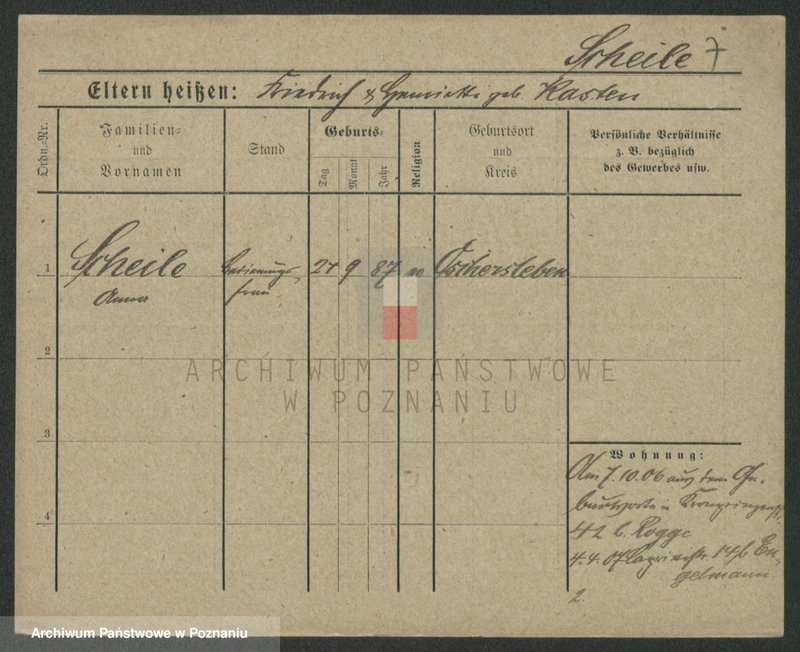 Scheile 7
Eltern heißen: Friedrich & Henriette geb Kasten
Ordn.-Nr.
Familien-
und
Vornamen
Stand
Geburts-
Tag
Monat
Jahr
Religion
Geburtsort
und
Kreis
Persönliche Verhältnisse
z. B. bezüglich
des Gewerbes usw.
1
Scheile
Anna
Bedienungs-
frau
24
9
87
ev
Oschersleben
2
ARCHIWUM PAŃSTWOWE
W POZNANIU
3
4
Wohnung:
Am 7.10.06 aus dem Ge-
burtsorte in
42 b. Rogge
4.4.07 14 b En-
gelmann
2.
Archiwum Państwowe w Poznaniu